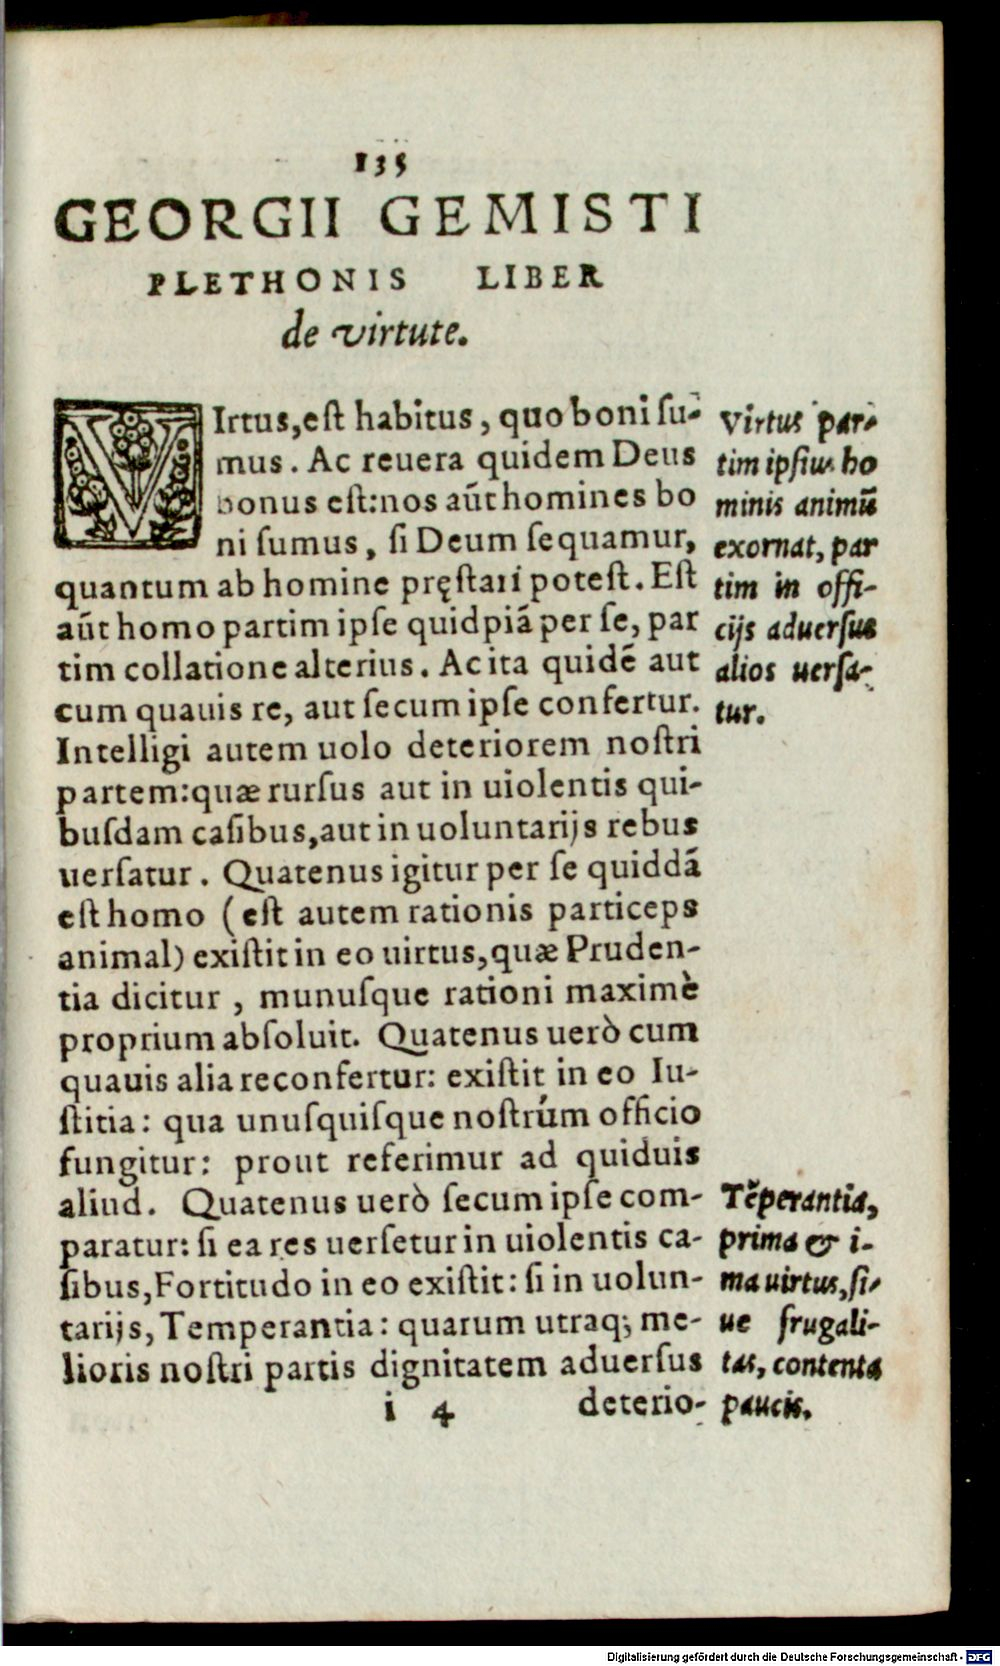 135
GEORGII GEMISTI
PLETHONIS LIBER
de virtute.
VIrtus, est habitus, quo boni su-
mus. Ac reuera quidem Deus
bonus est: nos aūt homines bo
ni sumus, si Deum sequamur,
quantum ab homine pręstari potest. Est
aūt homo partim ipse quidpiā per se, par
tim collatione alterius. Ac ita quidē aut
cum quauis re, aut secum ipse confertur.
Intelligi autem uolo deteriorem nostri
partem: quæ rursus aut in uiolentis qui-
busdam casibus, aut in uoluntarijs rebus
uersatur. Quatenus igitur per se quiddā
est homo (est autem rationis particeps
animal) existit in eo uirtus, quæ Pruden-
tia dicitur, munusque rationi maximè
proprium absoluit. Quatenus uerò cum
quauis alia re confertur: existit in eo Iu-
stitia: qua unusquisque nostrûm officio
fungitur: prout referimur ad quiduis
aliud. Quatenus uerò secum ipse com-
paratur: si ea res uersetur in uiolentis ca-
sibus, Fortitudo in eo existit: si in uolun-
tarijs, Temperantia: quarum utraq; me-
lioris nostri partis dignitatem aduersus
i 4 deterio-
Virtus par-
tim ipsius ho
minis animū
exornat, par
tim in offi-
cijs aduersus
alios uersa-
tur.
Tēperantia,
prima & i-
ma uirtus, si-
ue frugali-
tas, contenta
paucis.
Digitalisierung gefördert durch die Deutsche Forschungsgemeinschaft - DFG